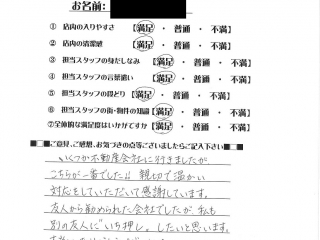 お名前：
① 店内の入りやすさ 【満足 ・ 普通 ・ 不満】
② 店内の清潔感 【満足 ・ 普通 ・ 不満】
③ 担当スタッフの身だしなみ 【満足 ・ 普通 ・ 不満】
④ 担当スタッフの言葉遣い 【満足 ・ 普通 ・ 不満】
⑤ 担当スタッフの段どり 【満足 ・ 普通 ・ 不満】
⑥ 担当スタッフの街・物件の知識【満足 ・ 普通 ・ 不満】
⑦全体的な満足度はいかがですか【満足 ・ 普通 ・ 不満】
■□■ご意見、ご感想、お気づきの点等ございましたらご記入下さい■□■
いくつか不動産会社に行きましたが
こちらが一番でした!! 親切で温かい
対応をしていただいて感謝しています。
友人から勧められた会社でしたが、私も
別の友人に"いち押し"したいと思います。